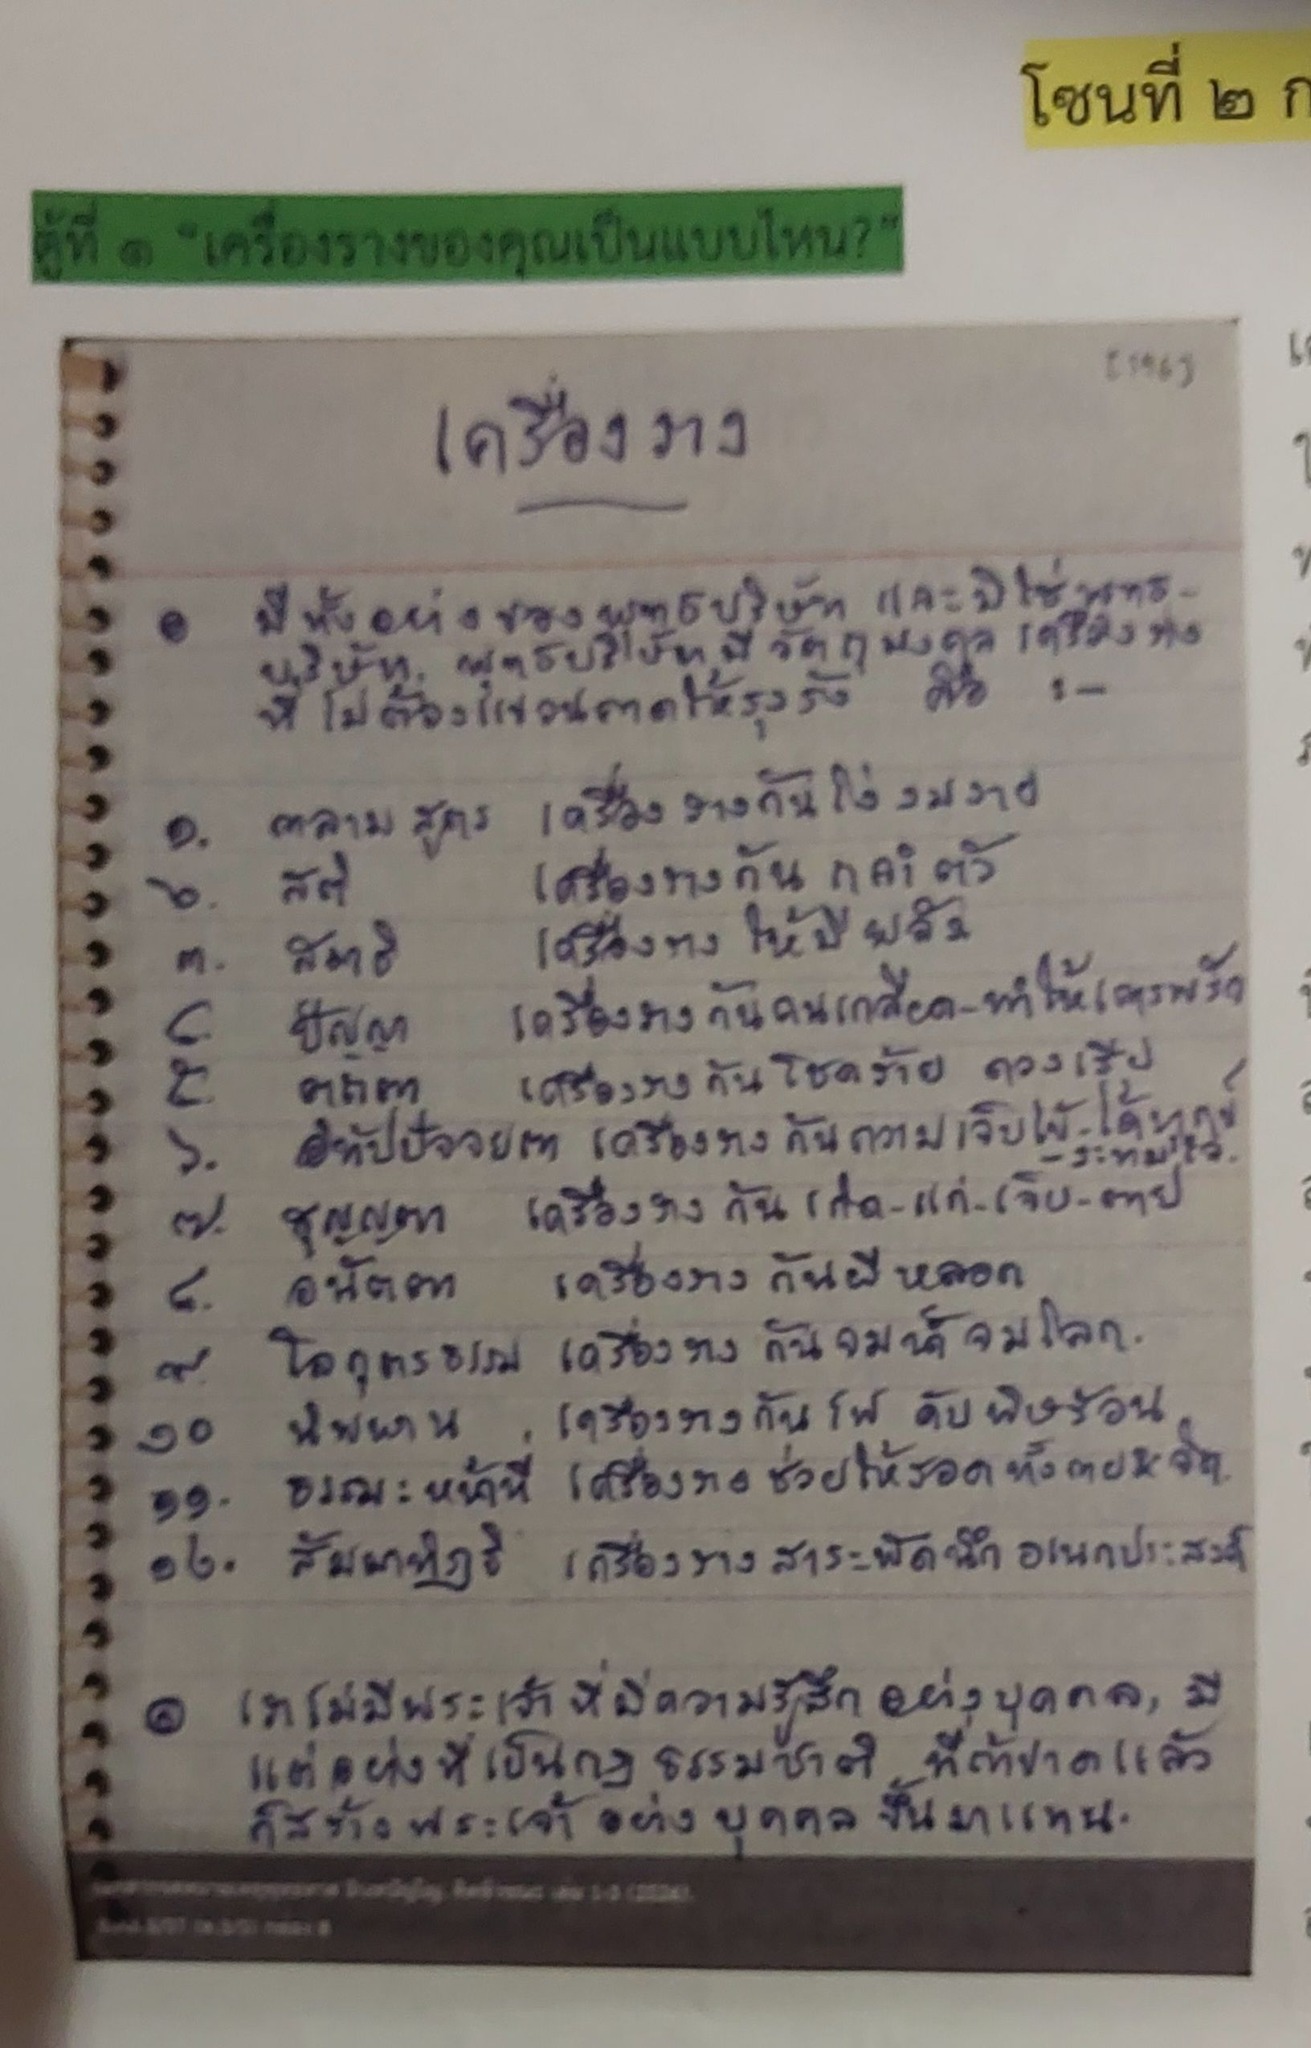 โซนที่ ๒ ก
ตู้ที่ ๑ "เครื่องรางของคุณเป็นแบบไหน?"
เครื่องราง
๏ มีทั้งอย่างของพุทธบริษัท และมิใช่พุทธ-
บริษัท. พุทธบริษัทมีวัตถุมงคล เครื่องราง
ที่ไม่ต้องแขวนคอให้รุงรัง คือ :-
๑. กาลามสูตร เครื่องรางกันโง่งมงาย
๒. สติ เครื่องรางกัน
๓. สมาธิ เครื่องราง ให้มีพลัง
๔ ปัญญา เครื่องรางกันคนเกลียด-ทำให้เคารพรัก
๕. ตถตา เครื่องรางกันโชคร้าย ดวงเสีย
๖. อิทัปปัจจยตา เครื่องรางกันความเจ็บไข้-ได้ทุกข์
-ระทมใจ.
๗. สุญญตา เครื่องรางกันเกิด-แก่-เจ็บ-ตาย
๘. อนัตตา เครื่องรางกันผีหลอก
๙. โลกุตรธรรม เครื่องรางกันจมน้ำจมโลก.
๑๐ นิพพาน เครื่องรางกันไฟ ดับพิษร้อน
๑๑. ธรรมะหน้าที่ เครื่องรางช่วยให้รอดทั้งกายจิต.
๑๒. สัมมาทิฏฐิ เครื่องรางสาระพัดนึก อเนกประสงค์
๏ เราไม่มีพระเจ้าที่มีความรู้สึกอย่างบุคคล, มี
แต่อย่างที่เป็นกฎธรรมชาติ ที่ถ้าขาดแล้ว
ก็สร้างพระเจ้าอย่างบุคคลขึ้นมาแทน.